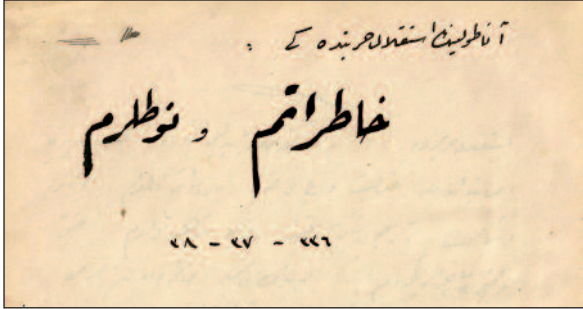 آناطولینك استقلال حربنده كی :
خاطراتم و نوطلرم
٣٣٦ - ٣٧ - ٣٨